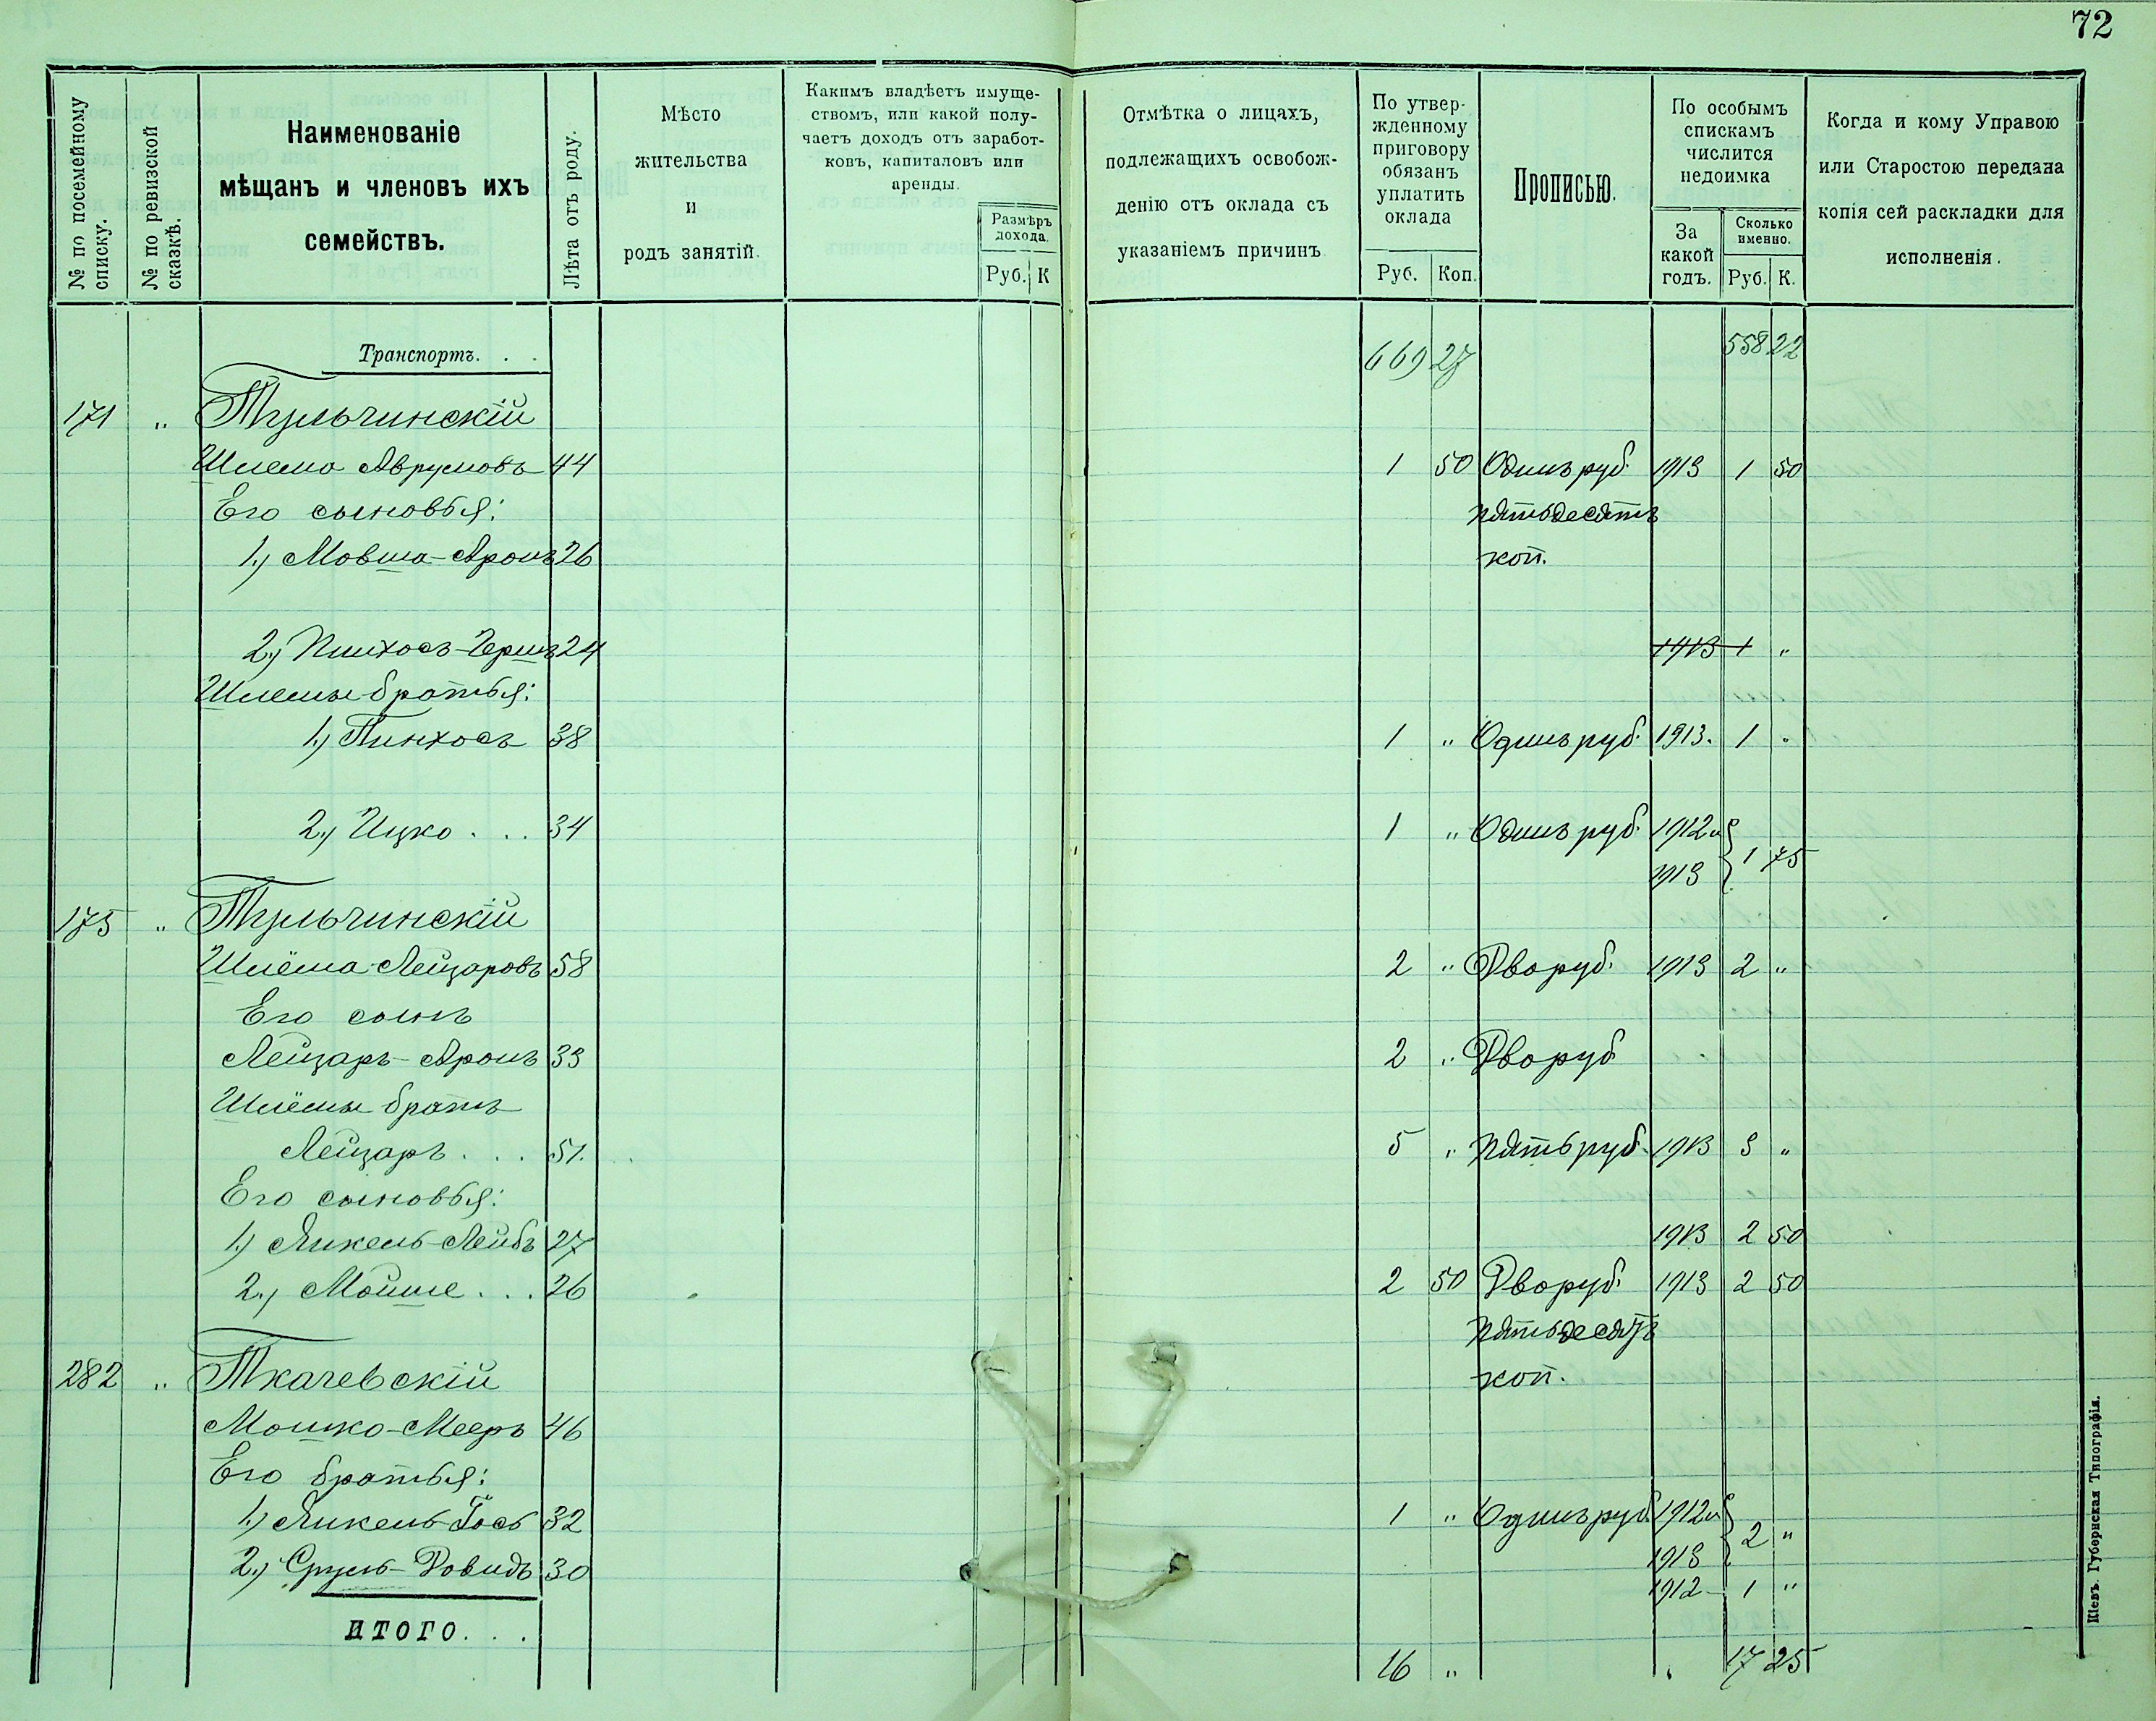 72
№ по посемейному списку.
№ по ревизской сказкѣ.
Наименованіе
мѣщанъ и членовъ ихъ
семействъ.
Лѣта отъ роду.
Мѣсто
жительства
и
родъ занятій.
Какимъ владѣетъ имуще-
ствомъ, или какой полу-
чаетъ доходъ отъ заработ-
ковъ, капиталовъ или
аренды.
Размѣръ
дохода.
Руб. К
Отмѣтка о лицахъ,
подлежащихъ освобож-
денію отъ оклада съ
указаніемъ причинъ
По утвер-
жденному
приговору
обязанъ
уплатить
оклада
Руб. Коп.
Прописью.
По особымъ
спискамъ
числится
недоимка
За
какой
годъ.
Сколько
именно.
Руб. К.
Когда и кому Управою
или Старостою передана
копія сей раскладки для
исполненія.
Транспортъ. . . 669 27 558 22
171 " Тульчинскій
Шлема Аврумовъ 44 1 50 Одинъ руб. 1913 1 50
Его сыновья: пятьдесятъ
1.) Мовша-Аронъ 26 коп.
2.) Пинхосъ-Гершъ 24 1913 1 "
Шлемы братья:
1.) Пинхосъ 38 1 " Одинъ руб. 1913. 1 "
2.) Ицко . . . 34 1 " Одинъ руб. 1912 и
1913 1 75
175 " Тульчинскій
Шлёма Лейзаровъ 58 2 " Два руб. 1913 2 "
Его сынъ
Лейзаръ-Аронъ 33 2 " Два руб
Шлёмы братъ
Лейзаръ . . . 51. 5 " Пять руб. 1913 5 "
Его сыновья:
1.) Янкель-Лейбъ 27 1913 2 50
2.) Мойше . . . 26 2 50 Два руб. 1913 2 50
пятьдесятъ
282 " Ткачевскій коп.
Мошко-Мееръ 46
Его братья:
1.) Янкель-Іось 32 1 " Одинъ руб. 1912 и
1913 2 "
2.) Сруль-Довидъ 30 1912 1 "
ИТОГО. . . 16 " 17 25
Кіевъ. Губернская Типографія.